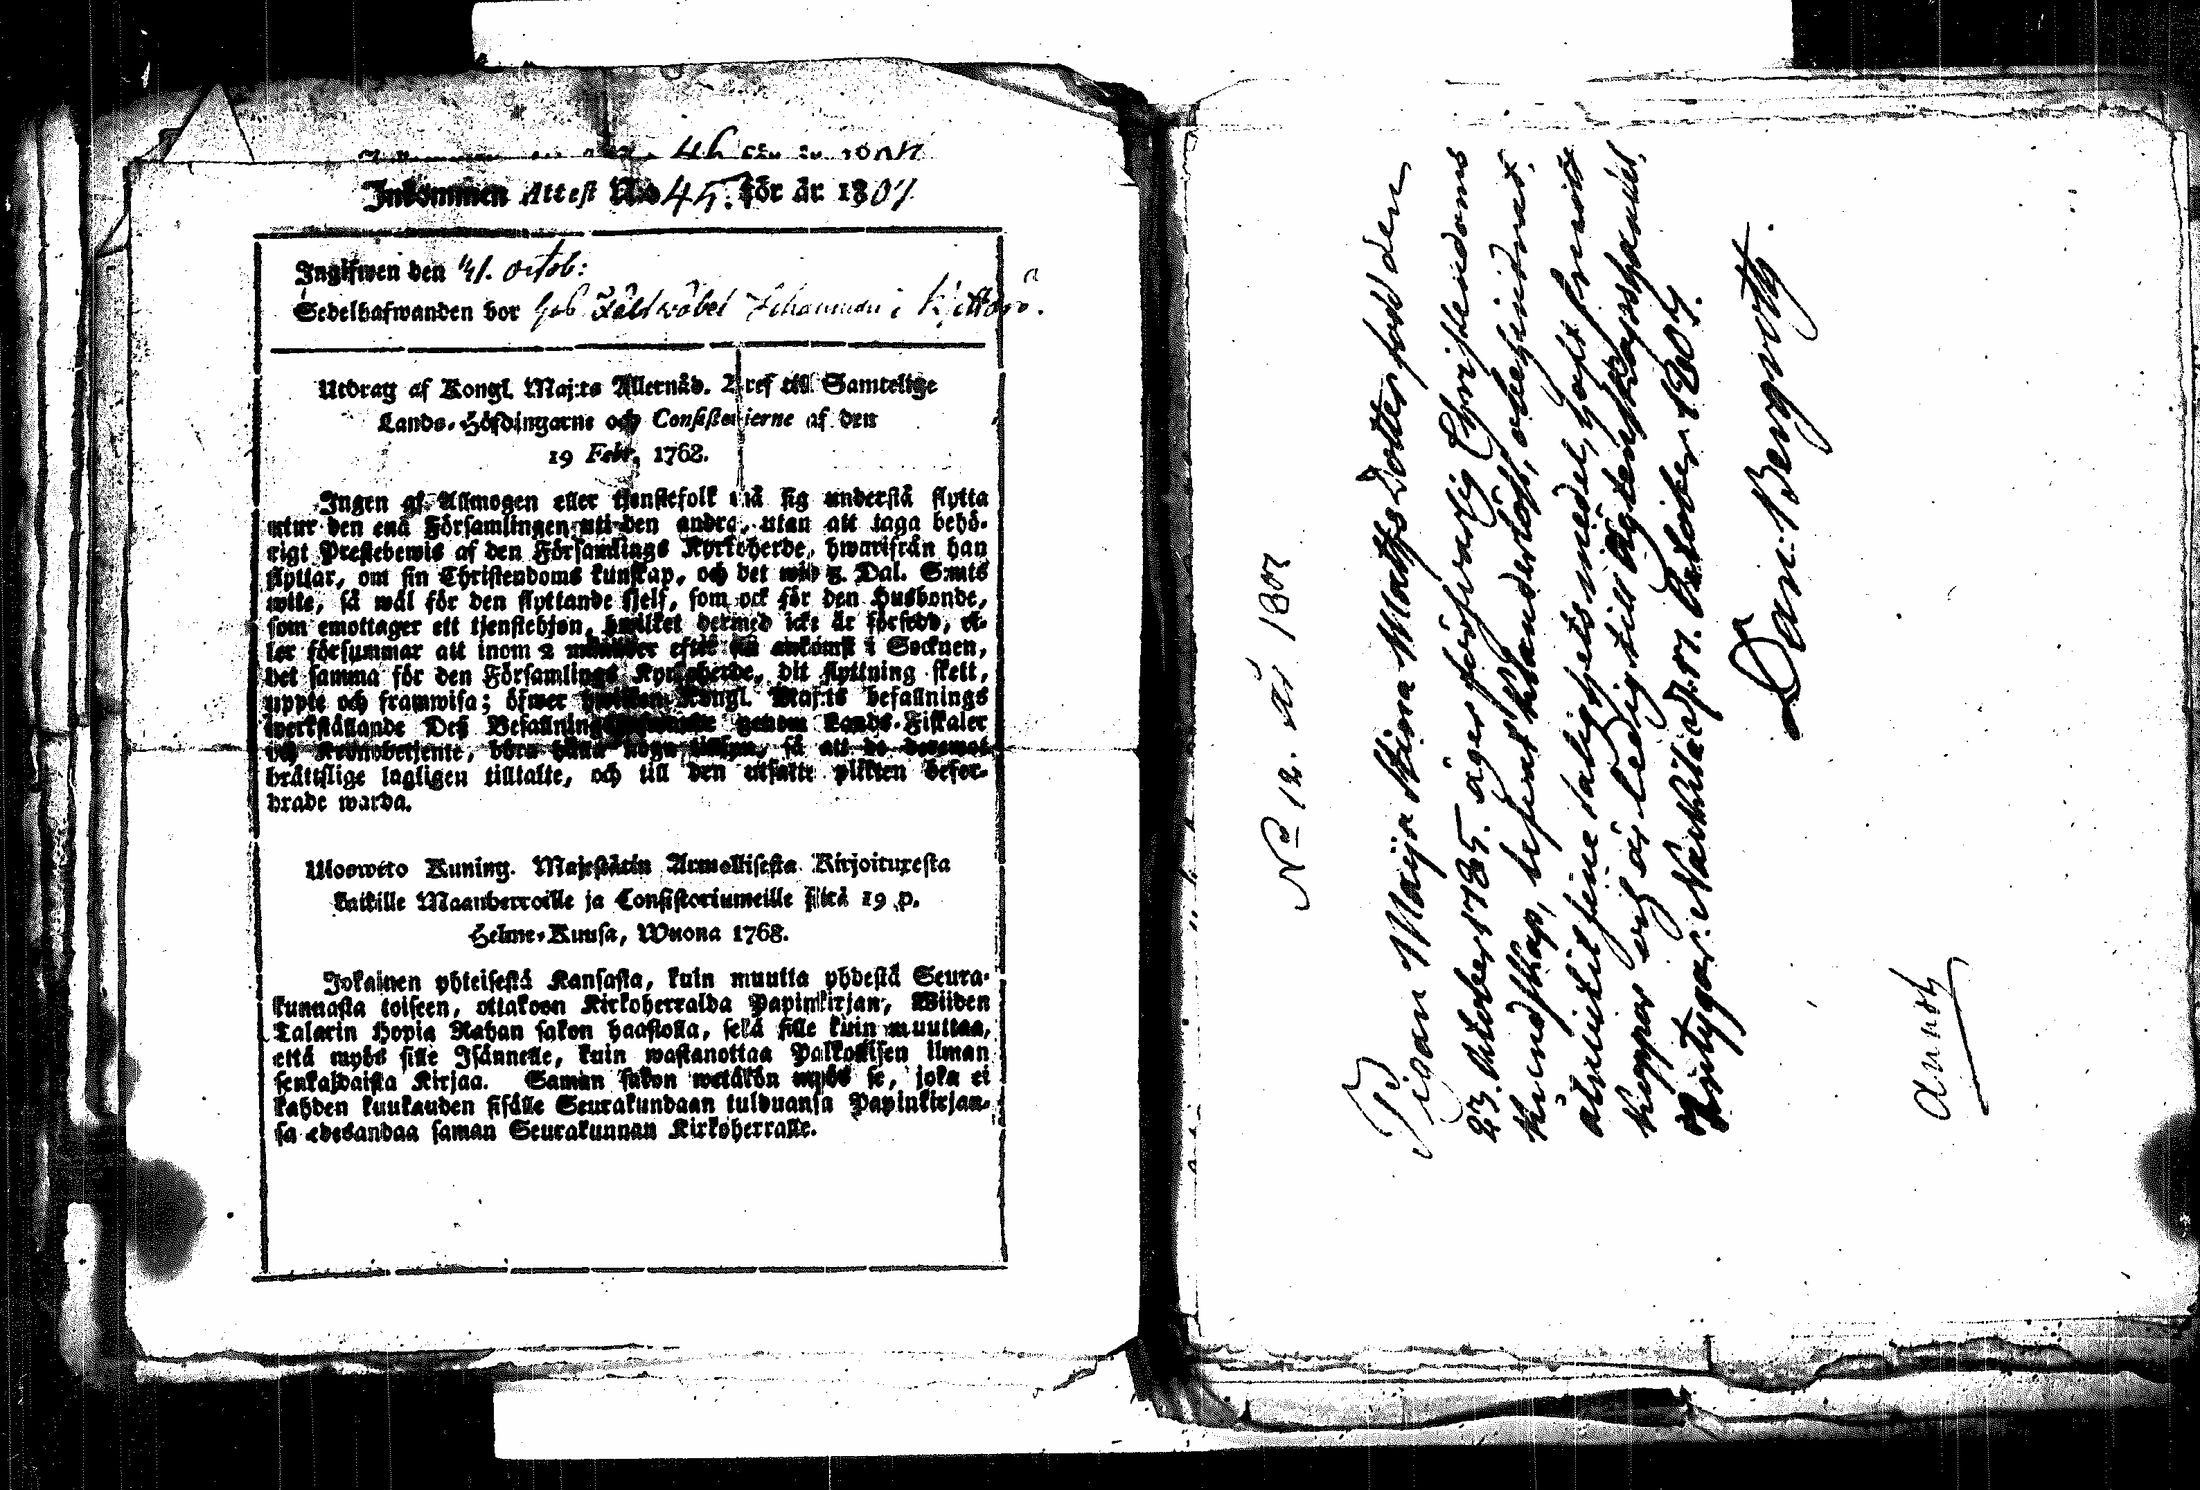 Inkommen Attest No 45. för år 1807
Ingifwen den 21. octob:
Sedelhafwanden bor hos Fältwäbel Johanman i
Utdrag af Kongl. Maj:ts Allernåd. Bref till Samtelige
Lands-Höfdingarne och Consistorierne af den
19 Febr. 1768.
Ingen af Allmogen eller tjenstefolk må sig understå flytta
utur den ena Församlingen uti den andra, utan att taga behö-
rigt Prestebewis af den Församlings Kyrkoherde, hwarifrån han
flyttar, om sin Christendoms kunskap, och det wid 5. Dal. S:mts
wite, så wäl för den flyttande sjelf, som ock för den Husbonde,
som emottager ett tjenstehjon, hwilket dermed icke är försedd, el-
ler försummar att inom 2 månader efter sin ankomst i Socknen,
det samma för den Församlings Kyrkoherde, dit flyttning skett,
uppte och framwisa; öfwer hwilken Kongl. Maj:ts befallnings
werkställande Des Befallningshafwande genom Lands-Fiskaler
och Kronobetjente, böra hålla noga tillsyn, så att de deremot
brättslige lagligen tilltalte, och till den utsatte plikten befor-
drade warda.
Uloswéto Kuning. Majestätin Armollisesta Kirjoituxesta
kaikille Maanherroille ja Consistoriumeille siitä 19 p.
Helme-Kuusa, Wuona 1768.
Jokainen yhteisestä Kansasta, kuin muutta yhdestä Seura-
kunnasta toiseen, ottakoon Kirkoherralda Papinkirjan, Wiiden
Talarin Hopia Rahan sakon haastolla, sekä sille kuin muuttaa,
että myös sille Isännelle, kuin wastanottaa Palkollisen ilman
senkaldaista Kirjaa. Saman sakon wetäkön myös se, joka ei
kahden kuukauden sisälle Seurakundaan tulduansa Papinkirjan-
sa edesandaa saman Seurakunnan Kirkoherralle.
No 12. år 1807
Pigan Maija Stina Matts Dotter född den
23. October 1785. äger försvarlig Christendoms
kundskap, beferat klanderlöst, obehindrat
åtniutit sine salighets medel, haft
koppor och är ledig till Ägtenskapshandel,
Intygar. d. 17. October 1807.
Dan: Bengvoth.